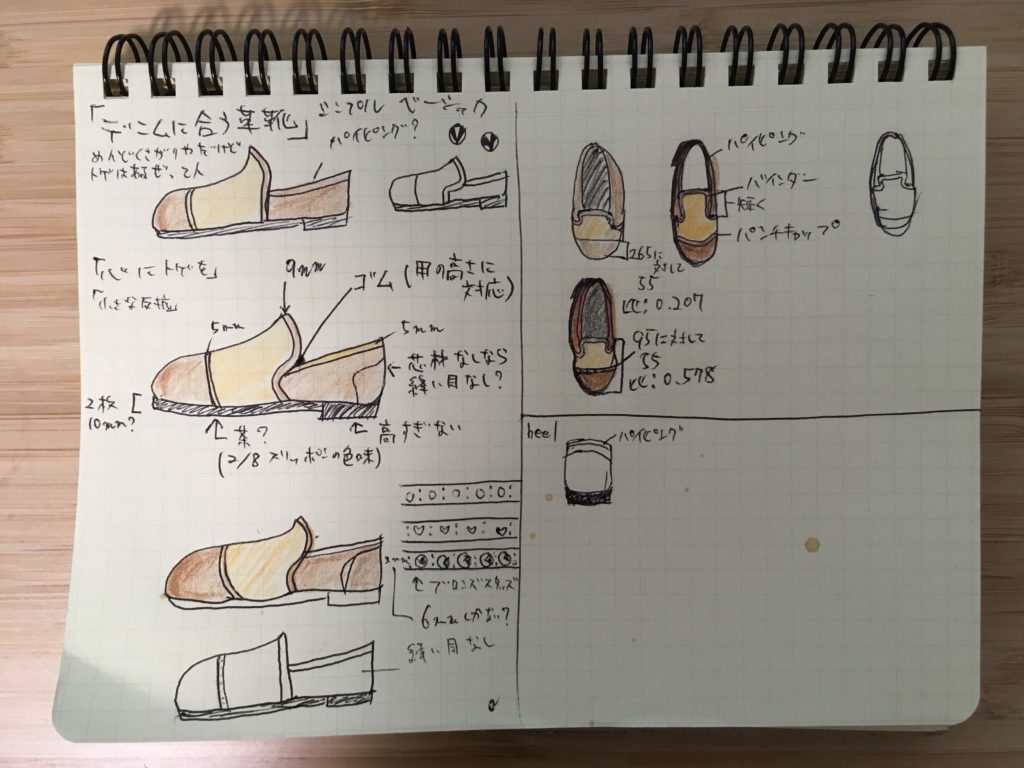 「デニムに合う革靴」 シンプル ベーシック
めんどくさがりやだけど
パイピング?
「心にトゲを」
「小さな反抗」
9mm
ゴム (甲の高さに
対応)
5mm
5mm
← 芯材なしなら
縫い目なし?
2枚
10mm?
↑ 茶?
(2/8 スリッポンの色味)
↑ 高すぎない
↑ ブロンズスタッズ
6mmしかない?
縫い目なし
パイピング
バインダー
短く
パンチキャップ
265に
対して
55
比:0.207
95に対して
55
比:0.578
heel
パイピング